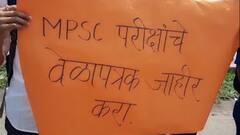 MPSC परीक्षांचे
वेळापत्रक जाहीर
करा.